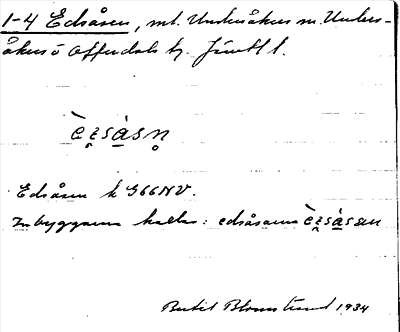 1-4 Edsåsen, mt. Undersåkers m. Unders-
åkers o Offerdals tg. Jämtl l.
è̀ẓsàsn̥
Edsåsen k G66NV.
Inbyggarna kallas: edsåsarna
Bertil Blomstrand 1934